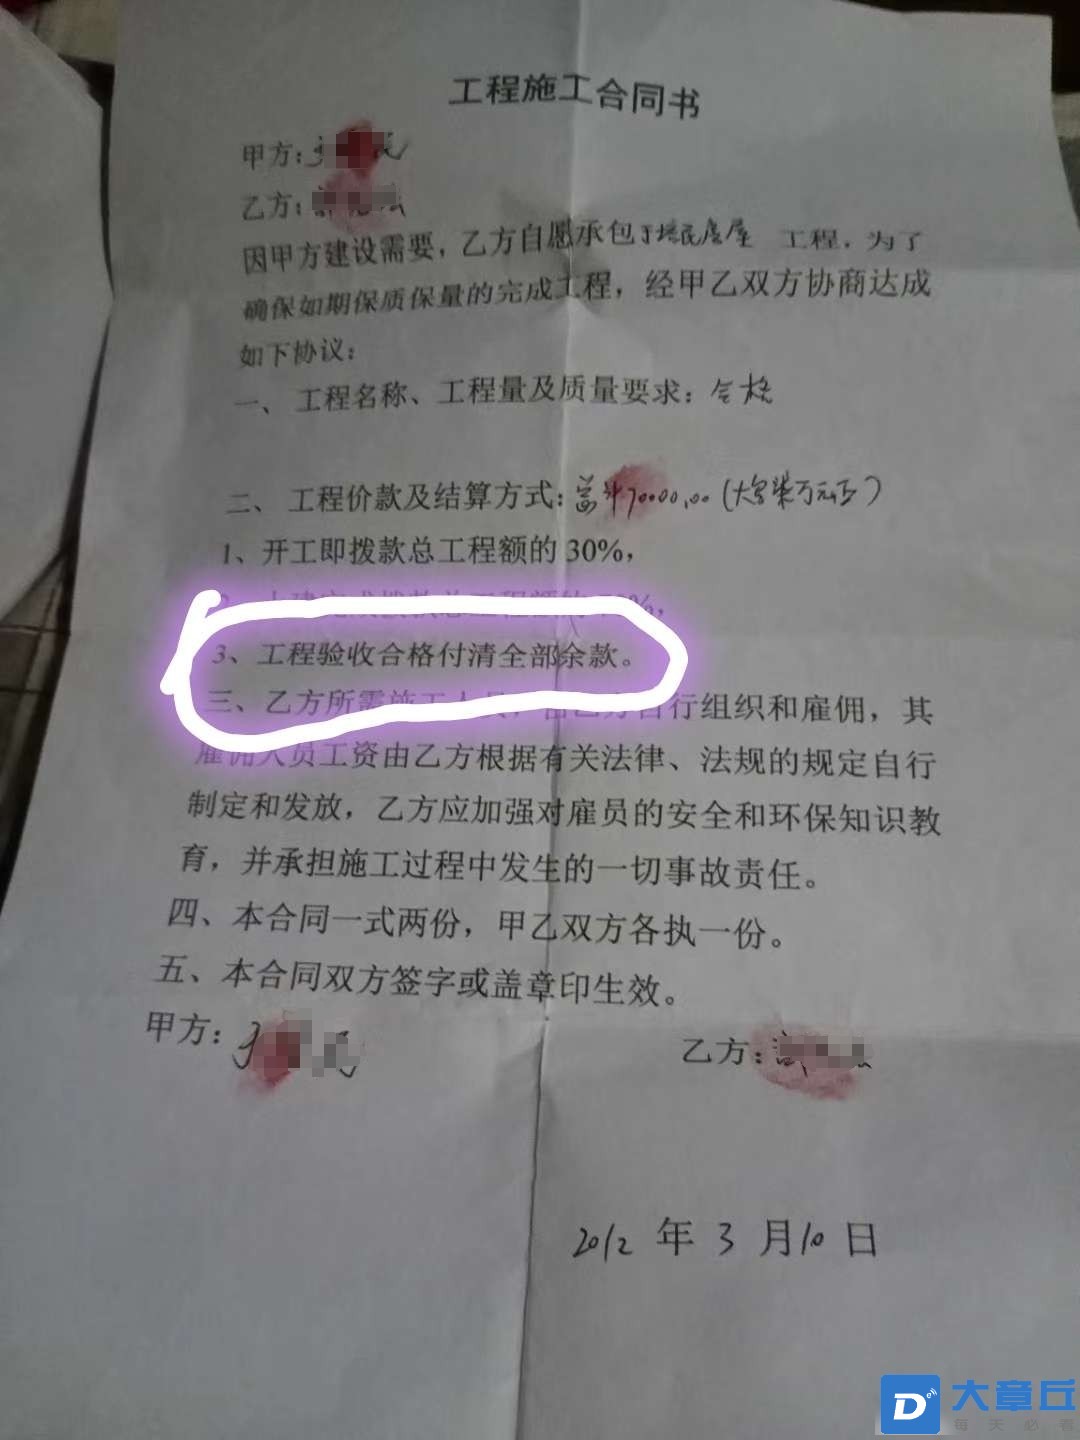 工程施工合同书
甲方：
乙方：
因甲方建设需要，乙方自愿承包于培民房屋 工程，为了
确保如期保质保量的完成工程，经甲乙双方协商达成
如下协议：
一、 工程名称、工程量及质量要求：合格
二、 工程价款及结算方式：70000.00（大写柒万元正）
1、开工即拨款总工程额的 30%，
3、工程验收合格付清全部余款。
三、乙方所需施工人员，由乙方自行组织和雇佣，其
雇佣人员工资由乙方根据有关法律、法规的规定自行
制定和发放，乙方应加强对雇员的安全和环保知识教
育，并承担施工过程中发生的一切事故责任。
四、本合同一式两份，甲乙双方各执一份。
五、本合同双方签字或盖章印生效。
甲方：
乙方：
2012 年 3 月 10 日
大章丘
每天必看